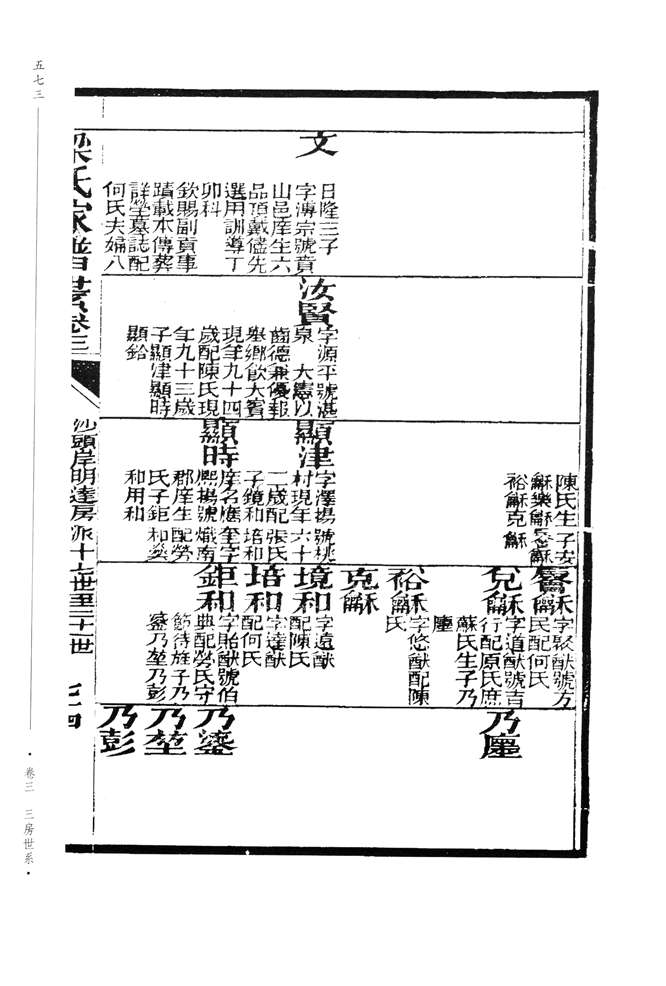 文
日隆三子
字溥宗號賁
山邑庠生六
品頂戴儘先
選用訓導丁
卯科
欽賜副貢事
蹟載本傳葬
詳塋墓誌配
何氏夫婦八
汝賢
字源平號湛
泉 大憲以
齒德兼優報
舉鄉飲大賓
現年九十四
歲配陳氏現
年九十三歲
子顯津顯時
顯鉿
陳氏生子安
龢樂龢
裕龢克龢
顯津
字澤揚號桃
村現年六十
二歲配張氏
子鏡和培和
顯時
庠名應奎字
熙揚號熾南
郡庠生配勞
氏子鉅和燊
和用和
龢
字馭猷號方
民配何氏
龢
字道猷號吉
行配原氏庶
蘇氏生子乃
塵
裕龢
字悠猷配陳
氏
克龢
境和
字遠猷
配陳氏
培和
字達猷
配何氏
鉅和
字貽猷號伯
典配勞氏守
節待旌子乃
鎏乃堃乃彭
乃塵
乃鎏
乃堃
乃彭
梁氏家譜 世系卷三
沙頭岸明達房派十七世至二十一世
五七三
·卷三 三房世系·